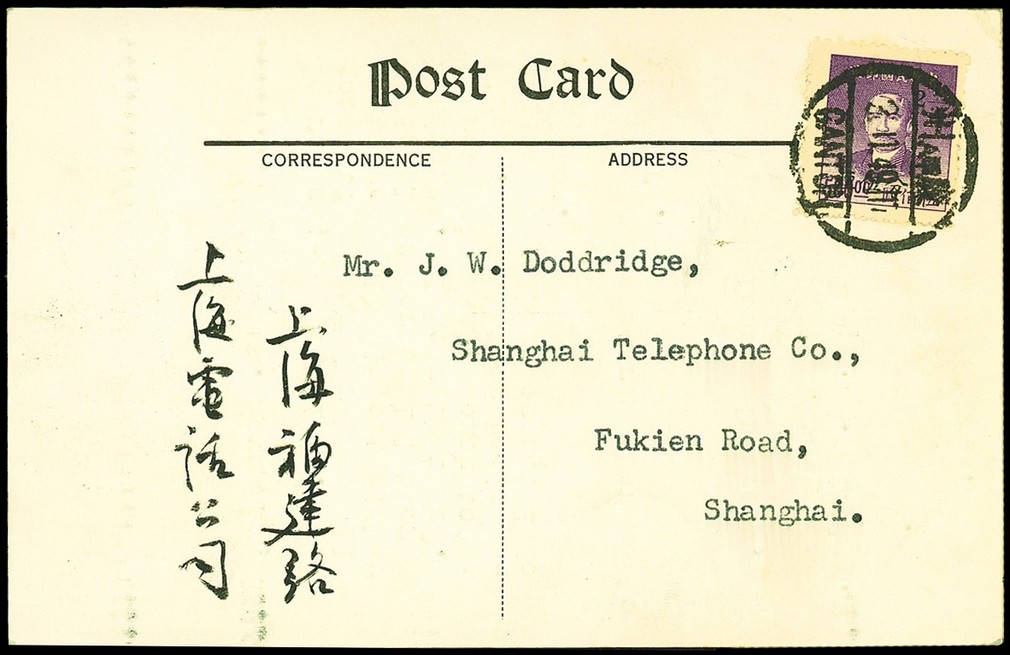 Post Card
CORRESPONDENCE
ADDRESS
CANTON
Mr. J. W. Doddridge,
Shanghai Telephone Co.,
Fukien Road,
Shanghai.
上海福建路
上海電話公司